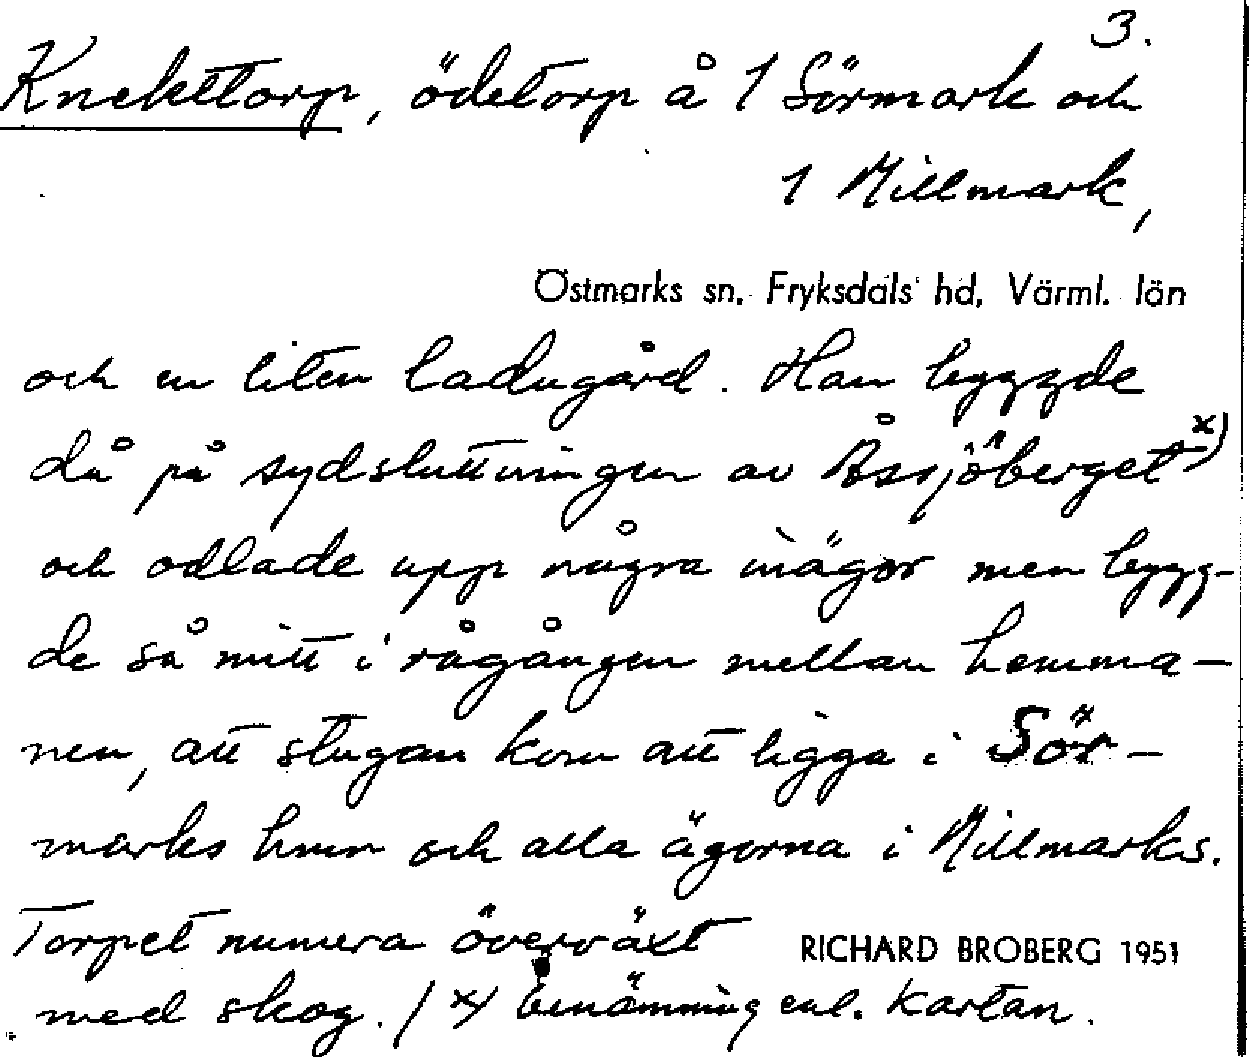 3.
Knekttorp, ödetorp å 1 Sörmark och
1 Millmark,
Östmarks sn. Fryksdals hd. Värml. län
och en liten ladugård. Han byggde
då på sydsluttningen av Åssjöberget x)
och odlade upp några inägor men bygg-
de så mitt i rågången mellan hemma-
nen, att stugan kom att ligga i Sör-
marks hmn och alla ägorna i Millmarks.
Torpet numera överväxt
RICHARD BROBERG 1951
med skog. / x) benämning enl. kartan.